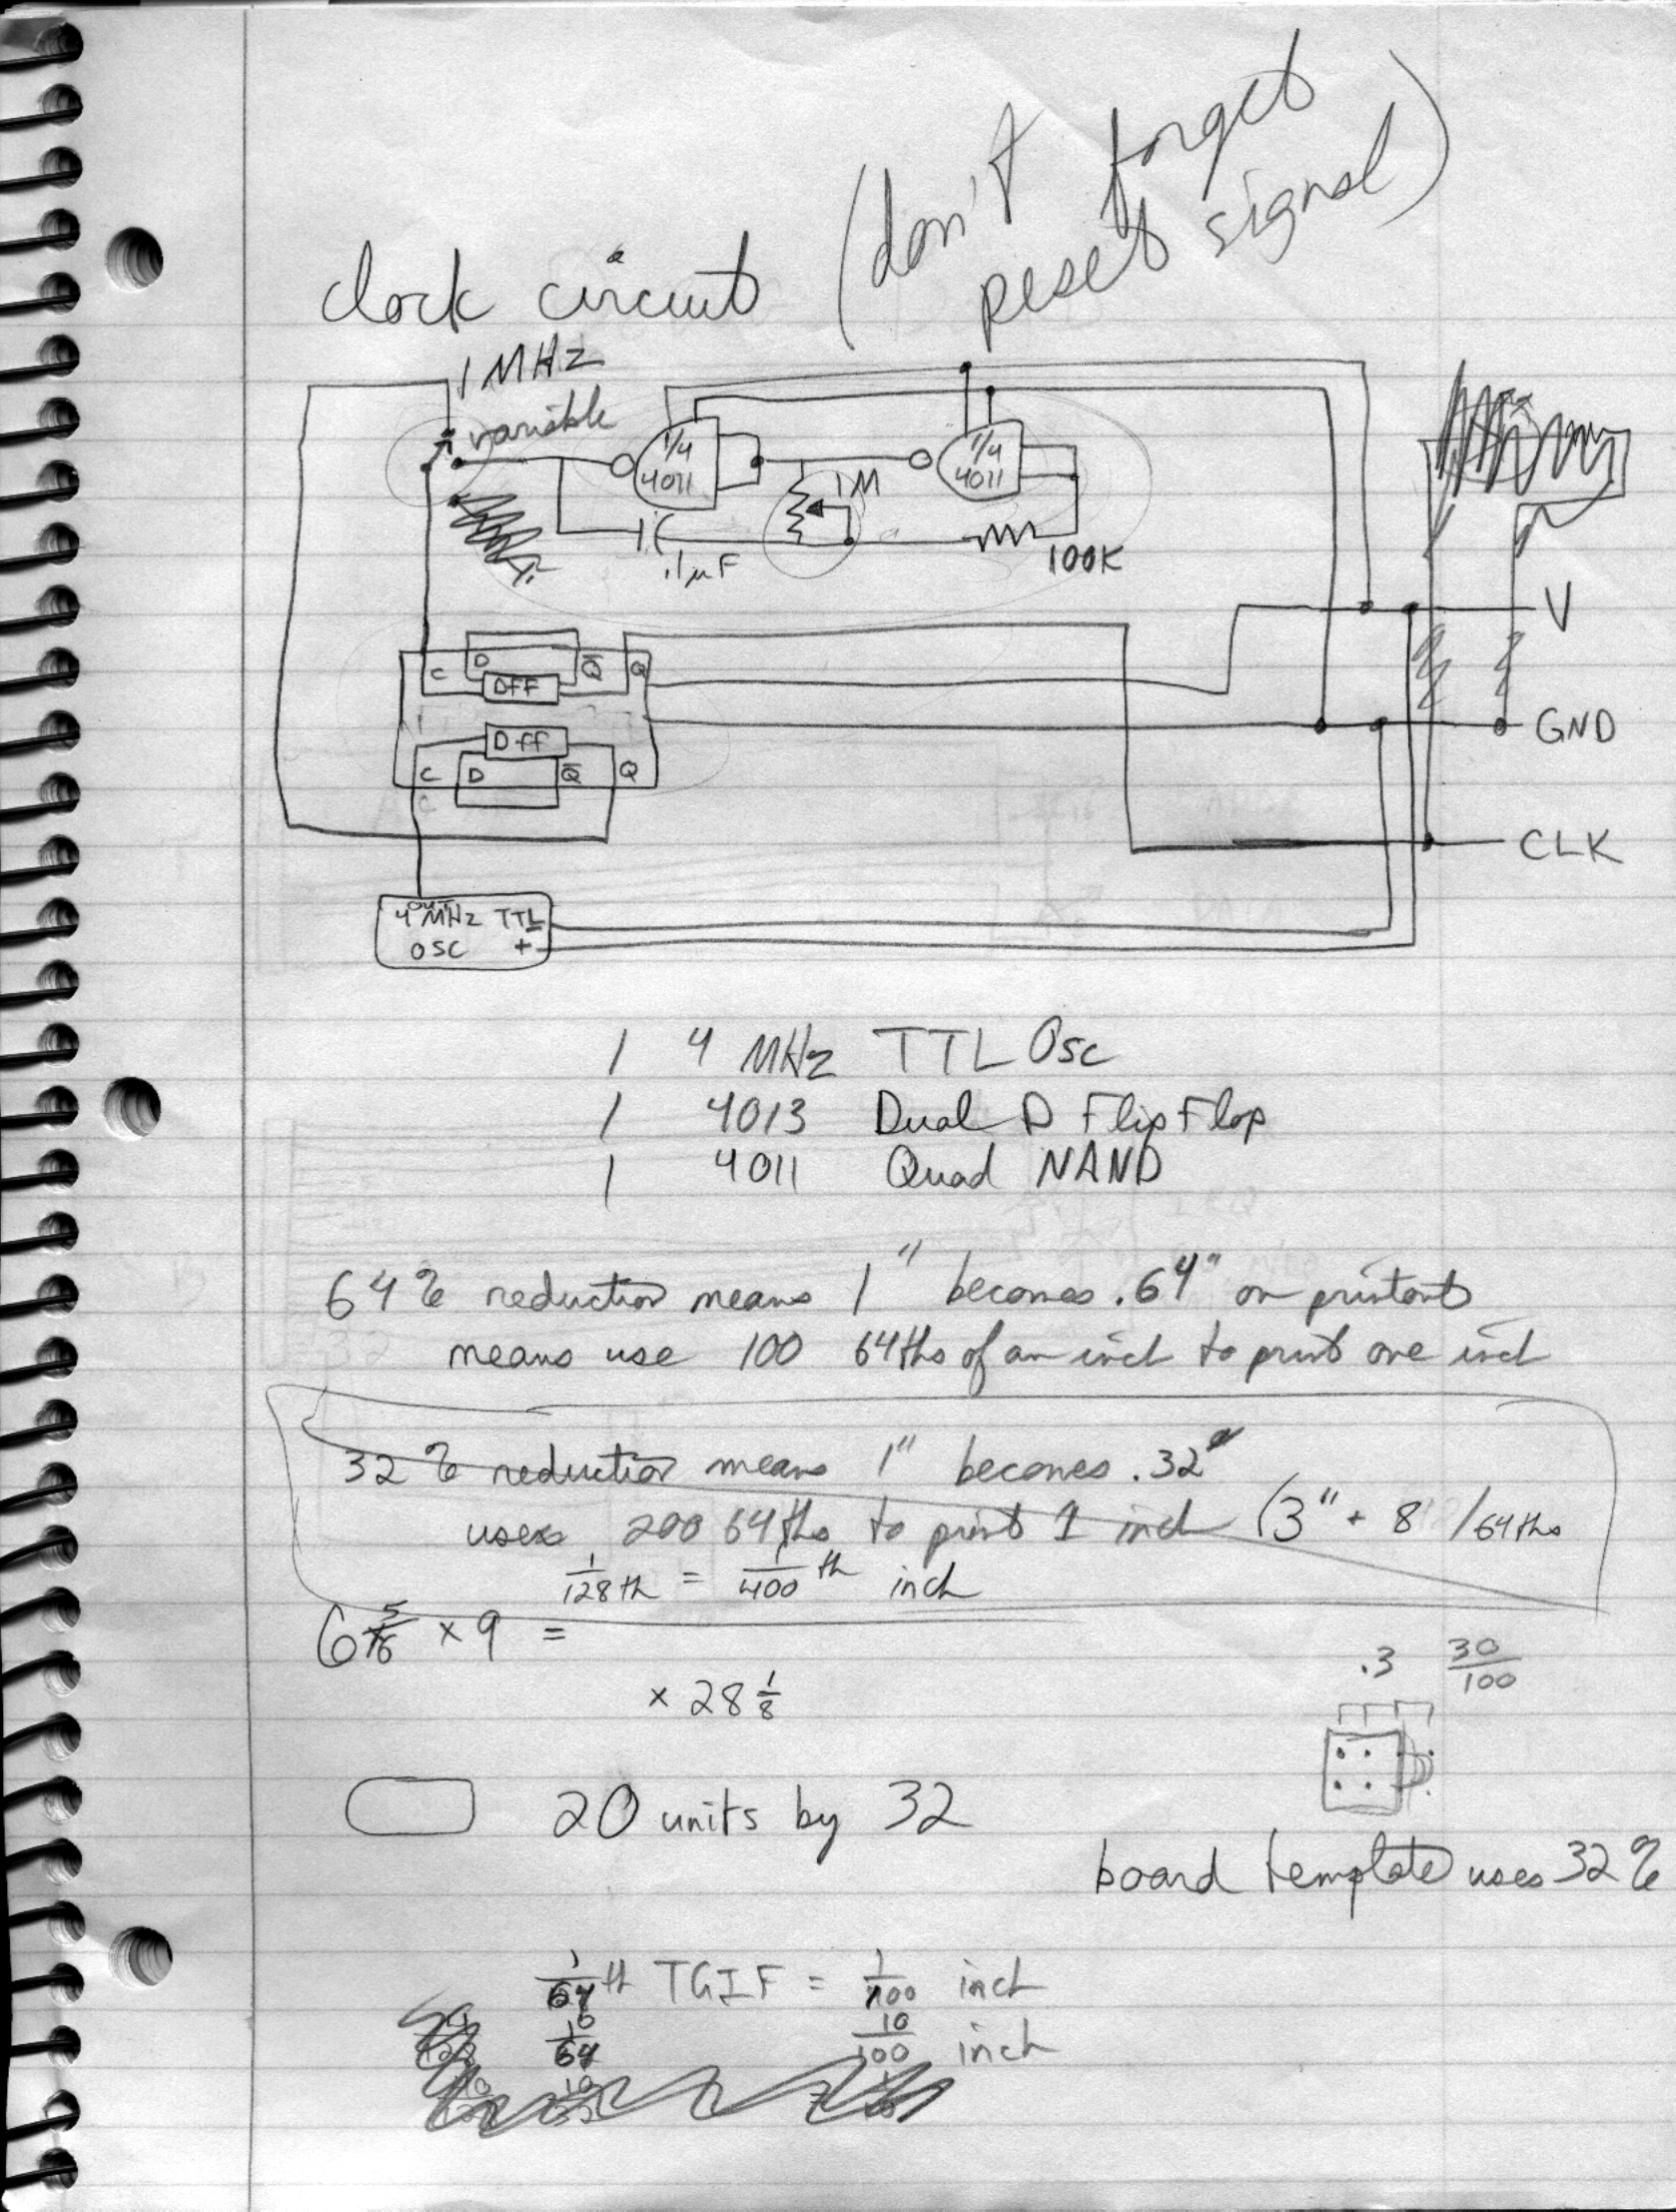 (don't forget
reset signal)
clock circuit
1 MHz
variable
1/4
4011
1/4
4011
1M
.1µF
100K
V
C D Q̅ Q
DFF
GND
Dff
C D Q̅ Q
C
CLK
out
4 MHz TTL -
OSC +
1 4 MHz TTL Osc
1 4013 Dual D Flip Flop
1 4011 Quad NAND
64% reduction means 1" becomes .64" on printout
means use 100 64ths of an inch to print one inch
32% reduction means 1" becomes .32"
uses 200 64ths to print 1 inch (3" + 8 /64ths
1/128th = 1/400th inch
6 5/16 × 9 =
.3 30/100
× 28 1/8
20 units by 32
board template uses 32%
1/64th TGIF = 1/100 inch
10/64 10/100 inch